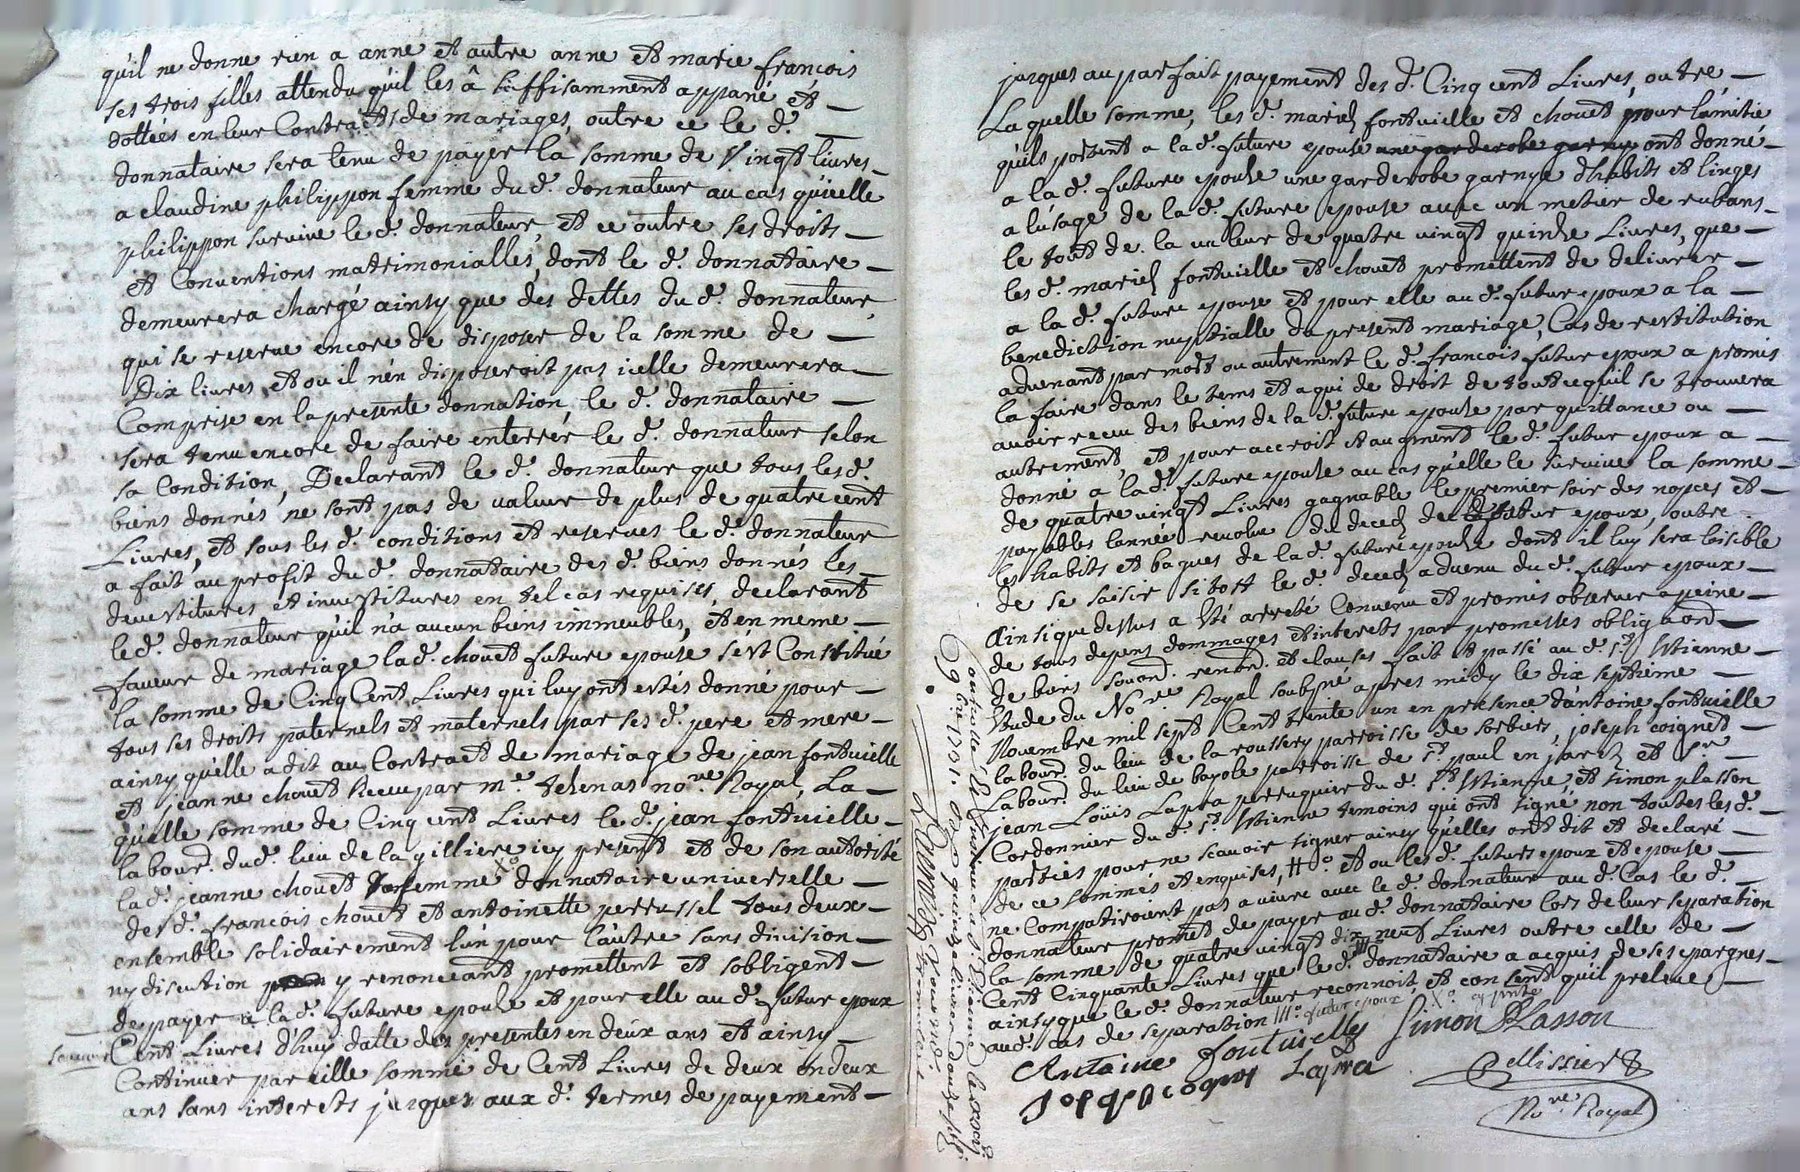 qu'il ne donne rien a anne et autre anne et marie francois
ses trois filles attendu qu'il les â suffisamment appané et
dottées en leur Contracts de mariages, outre ce le d.
donnataire sera tenu de payer la somme de Vingt livres
a claudine philippon femme du d. donnateur au cas qu'icelle
philippon survive le d. donnateur, et ce outre ses droits
et Conventions matrimonialles, dont le d. donnataire
demeurera chargé ainsy que des dettes du d. donnateur,
qui se reserve encore de disposer de la somme de
Dix livres et ou il n'en disposeroit pas icelle demeurera
Comprise en la presente donnation, le d. donnataire
sera tenu encore de faire enterrér le d. donnateur selon
sa Condition, Declarant le d. donnateur que tous les d.
biens donnés ne sont pas de valeur de plus de quatre cent
Livres, et sous les d. conditions et reserves le d. donnateur
a fait au profit du d. donnataire des d. biens donnés les
devestitures et investitures en tel cas requises, declarant
le d. donnateur qu'il n'a aucun biens immeubles, et en meme
faveur de mariage la d. chouet future epouse s'est Constitué
la somme de Cinq Cent Livres qui luy ont estés donné pour
tous ses droits paternels et maternels par ses d. pere et mere
ainsy qu'elle a dit au Contract de mariage de jean fontvielle
et jeanne chouet Receu par m.e thenas no.re Royal, La
qu'elle somme de Cinq cent Livres le d. jean fontvielle
labour.d du d. lieu de la gilliere icy present et de son autorité
la d. jeanne chouet sa femme X.o donnataire universelle
des d. francois chouet et antoinette perrussel tous deux
ensemble solidairement l'un pour l'autre sans division
ny discution y renonceant promettent et s'obligent
de payer a la d. future epouse et pour elle au d. futur epoux
Cent Livres d'huy datte des presentes en deux ans et ainsy
Continuer pareille somme de Cent Livres de deux en deux
ans sans interets jusques aux d. termes de payement
jusques au parfait payement des d. Cinq cent Livres, outre
Laquelle somme, les d. mariés fontvielle et chouet pour l'amitie
qu'ils portent a la d. future epouse une garderobe garnye ont donné
a la d. future epouse une garderobe garnye d'habits et linges
a l'usage de la d. future epouse avec un metier de rubans
le tout de la valeur de quatre vingt quinze Livres, que
les d. mariés fontvielle et chouet promettent de delivrer
a la d. future epouse et pour elle au d. futur epoux a la
benediction nuptialle du present mariage, Cas de restitution
advenant par mort ou autrement le d. francois futur epoux a promis
la faire dans le tems et a qui de droit de tout ce qu'il se trouvera
avoir receu des biens de la d. future epouse par quittance ou
autrement, et pour accroit et augment le d. futur epoux a
donné a la d. future epouse au cas qu'elle le survive la somme
de quatre vingt Livres gagnable le premier soir des nopces et
payables l'année revolue du deceds du d. futur epoux, outre
les habits et bagues de la d. future epouse dont il luy sera loisible
de se saisir sitost le d. deceds advenu du d. futur epoux
Ainsi que dessus a eté arreté Convenu et promis observer a peine
de tous depens dommages et interets par promesses oblig.aõns
de biens soum.d renon.d et clauses fait et passé au d. S.t Etienne
Etude du No.re Royal soubs.ne apres midy le dix septieme
Novembre mil sept Cent trente un en presence d'antoine fontvielle
labour.d du lieu de la roussery parroisse de sorbiers, joseph coignet
Labour.d du lieu de bayole parroisse de S.t paul en jarets et S.r
jean Loüis Lapra perruquier du d. S.t Etienne, et simon plasson
Cordonnier du d. S.t Etienne temoins qui ont signé non toutes les d.
parties pour ne scavoir signer ainsy qu'elles ont dit et declaré
de ce sommés et enquises, et ou les d. futurs epoux et epouse
ne Compatiroient pas a vivre avec le d. donnateur au d. Cas le d.
donnateur promet de payer au d. donnataire lors de leur separation
la somme de quatre vingt dix neuf Livres outre celle de
Cent Cinquante Livres que le d. donnataire a acquis de ses epargnes
ainsy que le d. donnateur reconnoit et consent qu'il preleve
au d. cas de separation III.o futur epoux X.o
Antoine fontvielle Simon Plasson
Joseph Cognet Lapra
Pellissier
No.re Royal